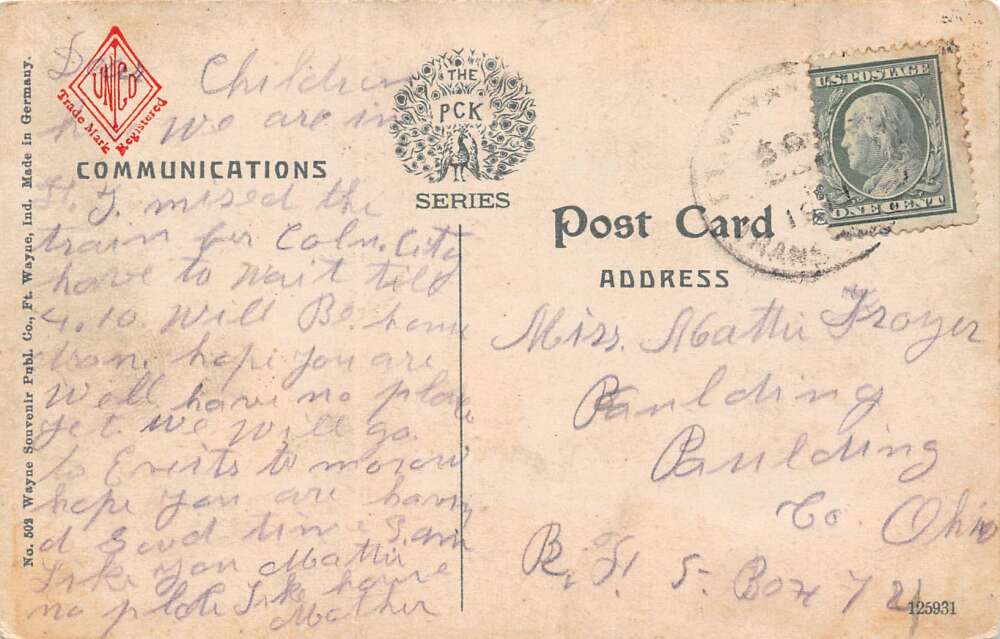 No. 502 Wayne Souvenir Publ. Co., Ft. Wayne, Ind. Made in Germany.
UNCO
Trade Mark Registered
COMMUNICATIONS
THE
PCK
SERIES
Post Card
ADDRESS
U.S. POSTAGE
ONE CENT
Children
We are in
mised the
train for Colu. City
have to wait
4.10. Will Be home
hope you are
Well have no place
yet. We Will go
to morow
hope you are
Good time I am
Like you Mattie
no place Like home
Mother
Miss. Mattie Troyer
Paulding
Paulding
Co. Ohio
R. F. 5 - Box 72
125931